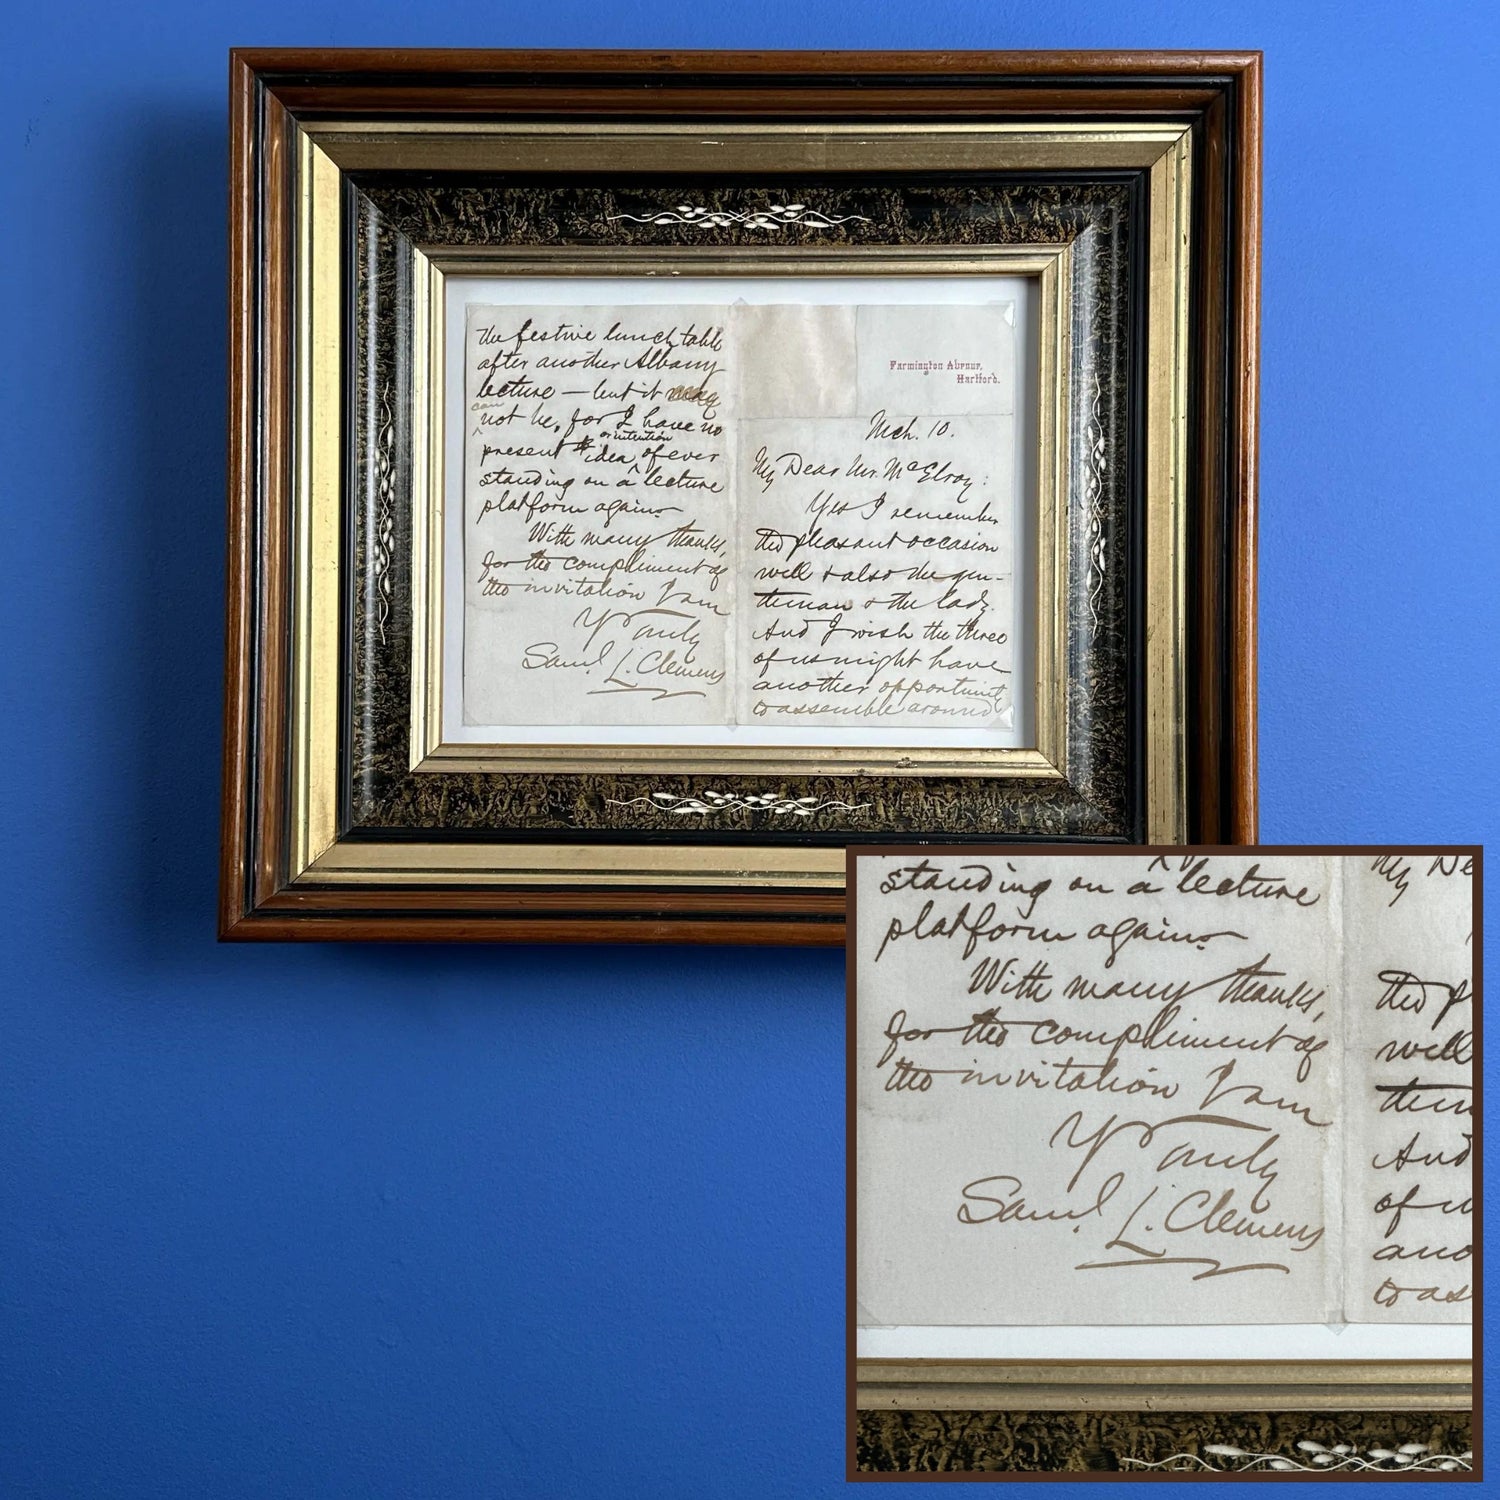 Farmington Avenue,
Hartford.
Mch. 10.
My Dear Mr. McElroy:
Yes I remember
the pleasant occasion
well & also the gen-
tleman & the lady.
And I wish the three
of us might have
another opportunity
to assemble around
the festive lunch table
after another Albany
lecture — but it may
can
not be, for I have no
or intention
present idea of ever
standing on a lecture
platform again.
With many thanks,
for the compliment of
the invitation I am
Yrs Truly
Saml. L. Clemens
standing on a lecture
platform again.
With many thanks,
for the compliment of
the invitation I am
Yrs Truly
Saml. L. Clemens
My De
the pl
well
tlem
And
of u
ano
to as